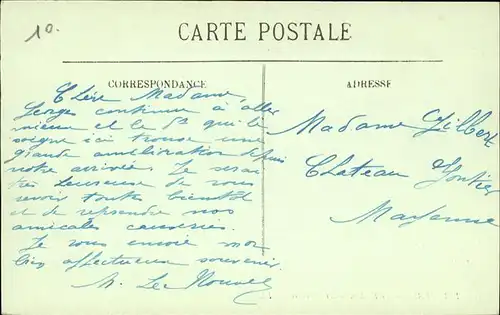 10.
CARTE POSTALE
CORRESPONDANCE
ADRESSE
Chère Madame,
Georges continue à aller
mieux et le Dr qui le
soigne ici trouve une
grande amélioration depuis
notre arrivée. Je serai
très heureuse de vous
revoir toutes bientôt
et de reprendre nos
amicales causeries.
Je vous envoie mon
bien affectueux souvenir.
Madame Gilbert
Château Gontier
Mayenne